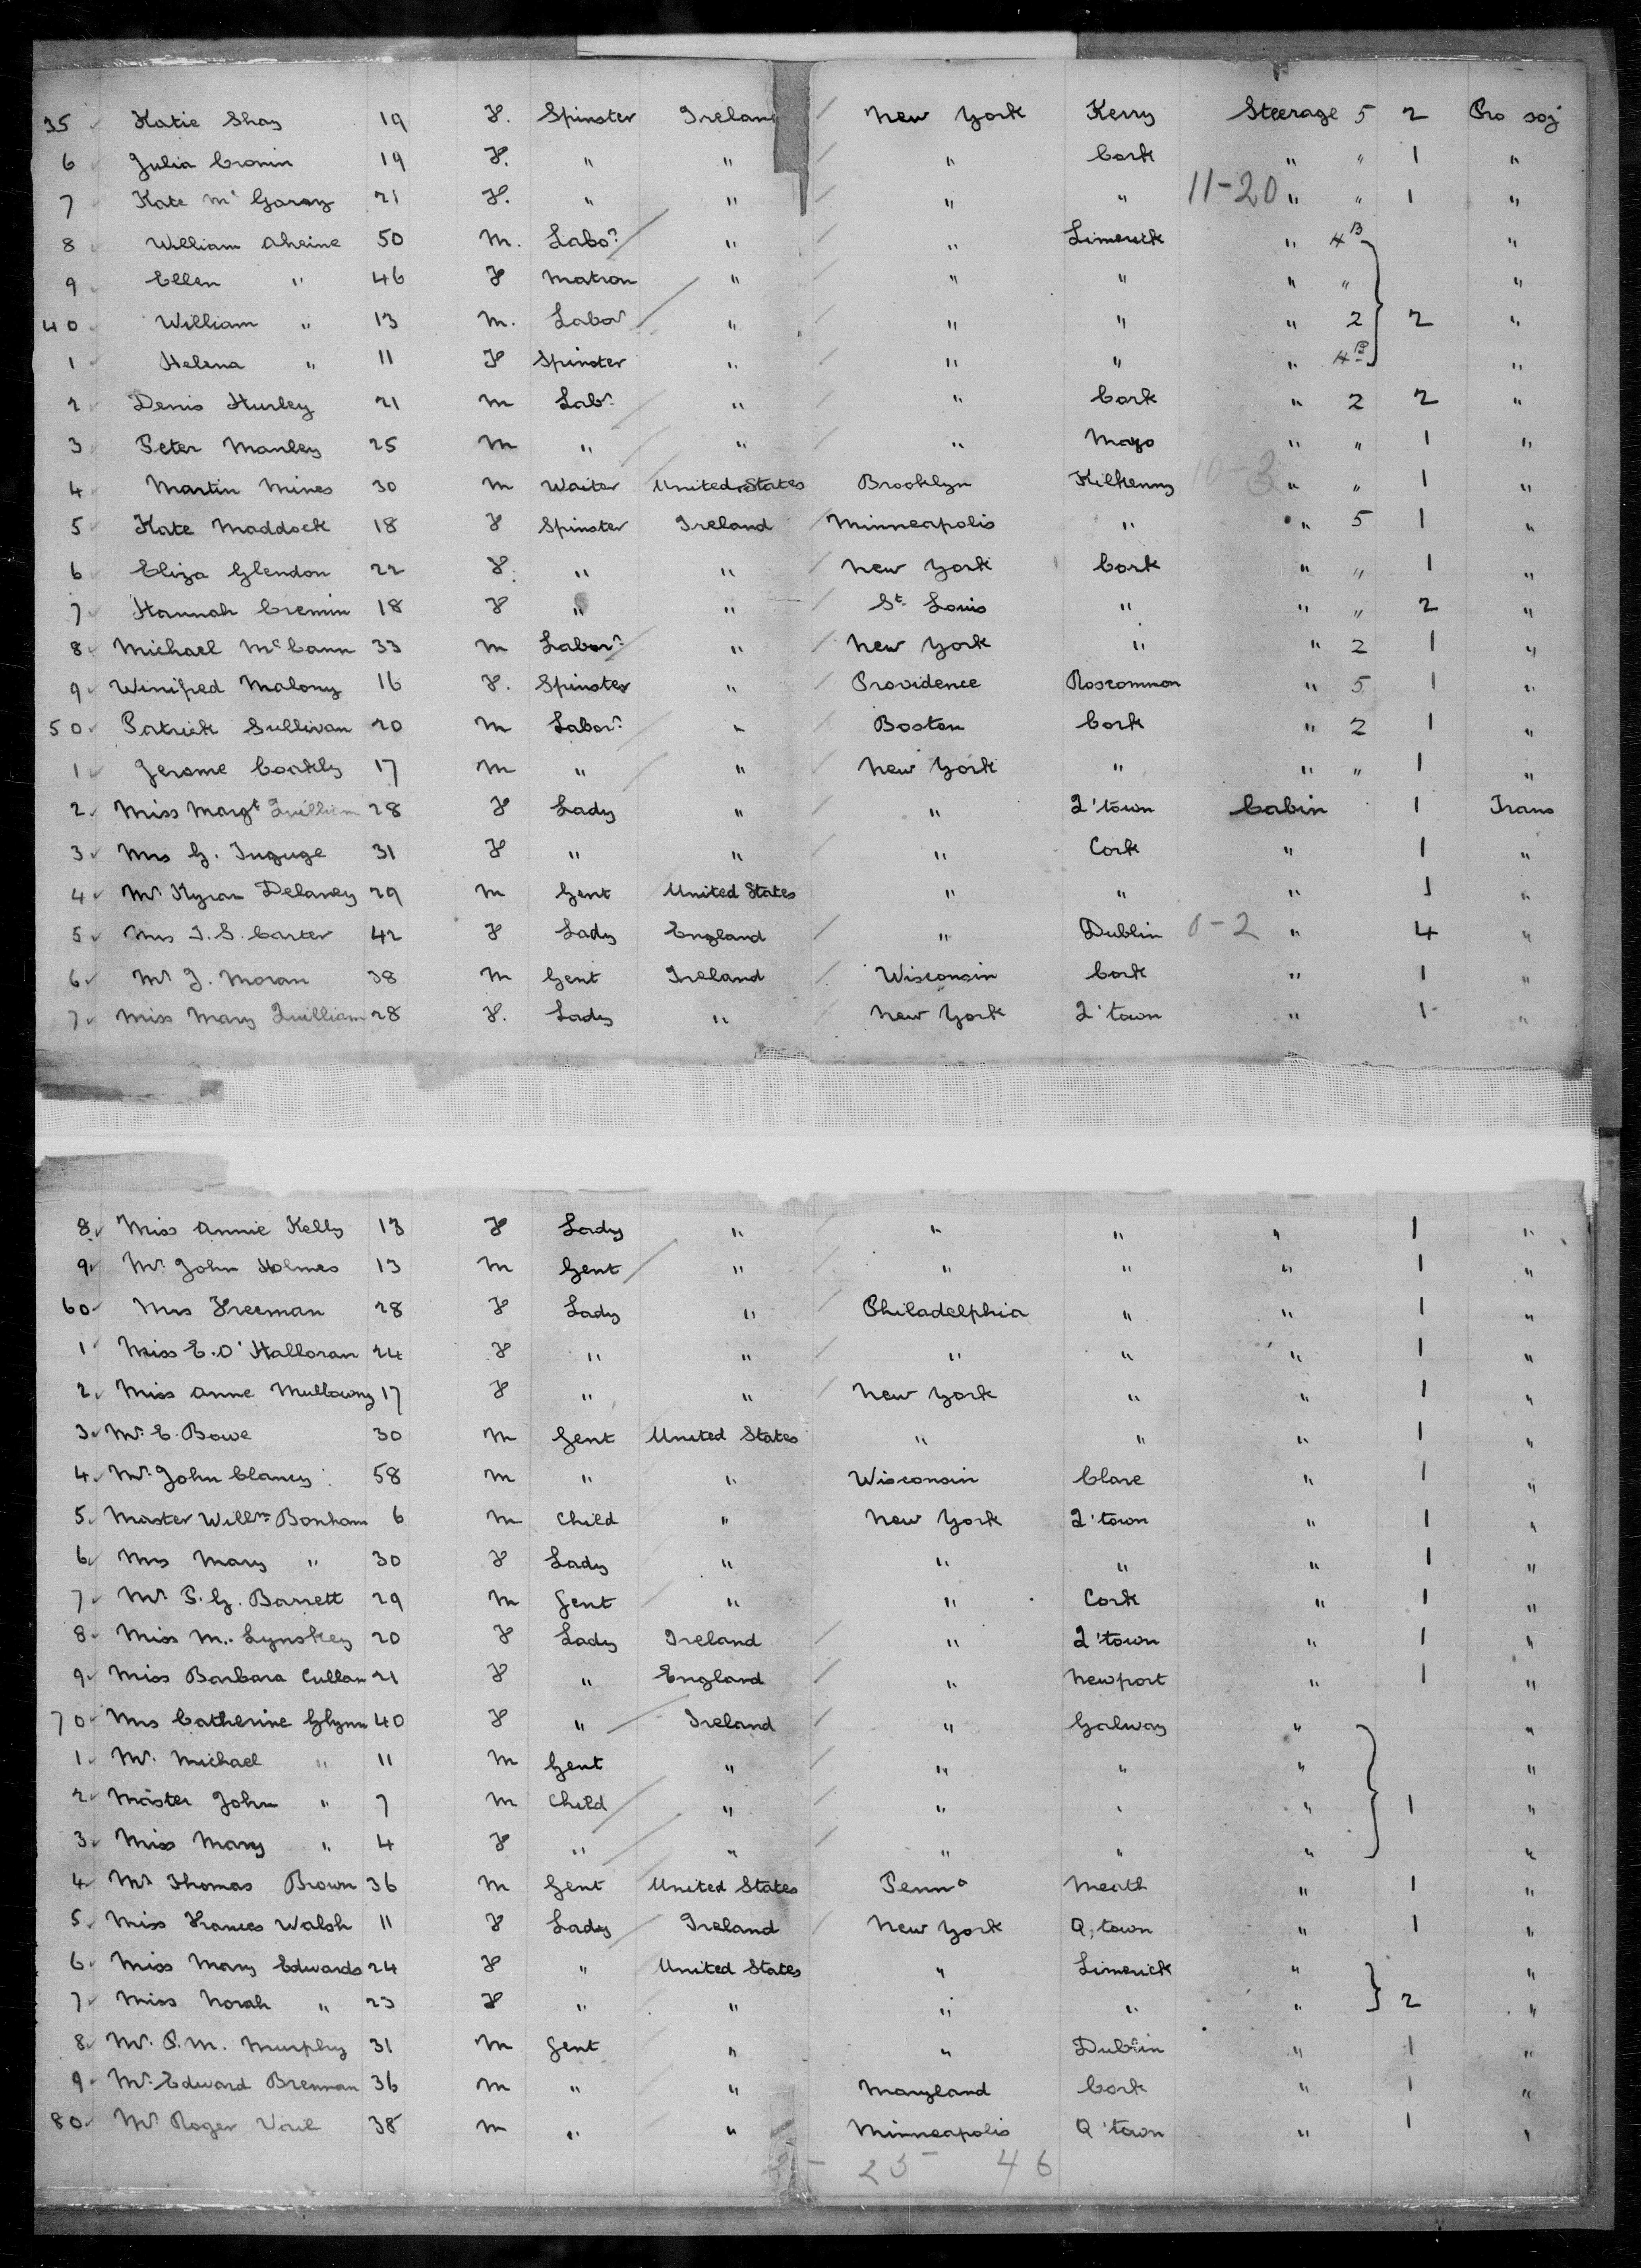 35 Katie Shay 19 F. Spinster Ireland / New York Kerry Steerage 5 2 Pro soj
6 Julia Cronin 19 F. " " / " Cork " " 1 "
7 Kate Mc Garry 21 F. " " / " " 11-20 " " 1 "
8 William Aheine 50 M. Labor / " / " Limerick " 4B "
9 Ellen " 46 F Matron / " / " " " " "
40 William " 13 M. Labor / " / " " " 2 } 2 "
1 Helena " 11 F Spinster " / " " " 4B "
2 Denis Hurley 21 M Labr " / " Cork " 2 2 "
3 Peter Manley 25 M " / " / " Mayo " " 1 "
4 Martin Mines 30 M Waiter United States Brooklyn Kilkenny 10-3 " " 1 "
5 Kate Maddock 18 F Spinster Ireland / Minneapolis " " 5 1 "
6 Eliza Glendon 22 F. " " / New York Cork " " 1 "
7 Hannah Cremin 18 F " " / St. Louis " " " 2 "
8 Michael McCann 33 M Labor / " / New York " " 2 1 "
9 Winifred Malony 16 F. Spinster " / Providence Roscommon " 5 1 "
50 Patrick Sullivan 20 M Labor / " / Boston Cork " 2 1 "
1 Jerome Coakly 17 M " / " / New York " " " 1 "
2 Miss Margt Quilliam 28 F Lady " / " Q'town Cabin 1 Trans
3 Mrs G. 31 F " " / " Cork " 1 "
4 Mr. Kyran Delaney 29 M Gent United States " " " 1 "
5 Mrs T. S. Carter 42 F Lady England / " Dublin 0-2 " 4 "
6 Mr. J. Moran 38 M Gent Ireland / Wisconsin Cork " 1 "
7 Miss Mary Quilliam 28 F. Lady " / New York Q'town " 1 "
8 Miss Annie Kelly 13 F Lady " / " " " 1 "
9 Mr. John Holmes 13 M Gent / " / " " " 1 "
60 Mrs Freeman 28 F Lady " / Philadelphia " " 1 "
1 Miss E. O'Halloran 24 F " " / " " " 1 "
2 Miss Anne Mullowny 17 F " " / New York " " 1 "
3 Mr. E. Bowe 30 M Gent United States " " " 1 "
4 Mr. John Clancy 58 M " " Wisconsin Clare " 1 "
5 Master Willm Bonham 6 M Child " New York Q'town " 1 "
6 Mrs Mary " 30 F Lady " " " " 1 "
7 Mr. P. G. Barrett 29 M Gent " " Cork " 1 "
8 Miss M. Lynskey 20 F Lady Ireland / " Q'town " 1 "
9 Miss Barbara Cullan 21 F " England / " Newport " 1 "
70 Mrs Catherine Glynn 40 F " / Ireland / " Galway " "
1 Mr. Michael " 11 M Gent " / " " " "
2 Master John " 7 M Child / " / " " " } 1 "
3 Miss Mary " 4 F " / " / " " " "
4 Mr. Thomas Brown 36 M Gent United States Penna Meath " 1 "
5 Miss Frances Walsh 11 F Lady / Ireland / New York Q,town " 1 "
6 Miss Mary Edwards 24 F " United States " Limerick " "
7 Miss Norah " 23 F " " " " " } 2 "
8 Mr. P. M. Murphy 31 M Gent " " Dublin " 1 "
9 Mr. Edward Brennan 36 M " " Maryland Cork " 1 "
80 Mr. Roger Vail 38 M " " Minneapolis Q'town " 1 "
25 46